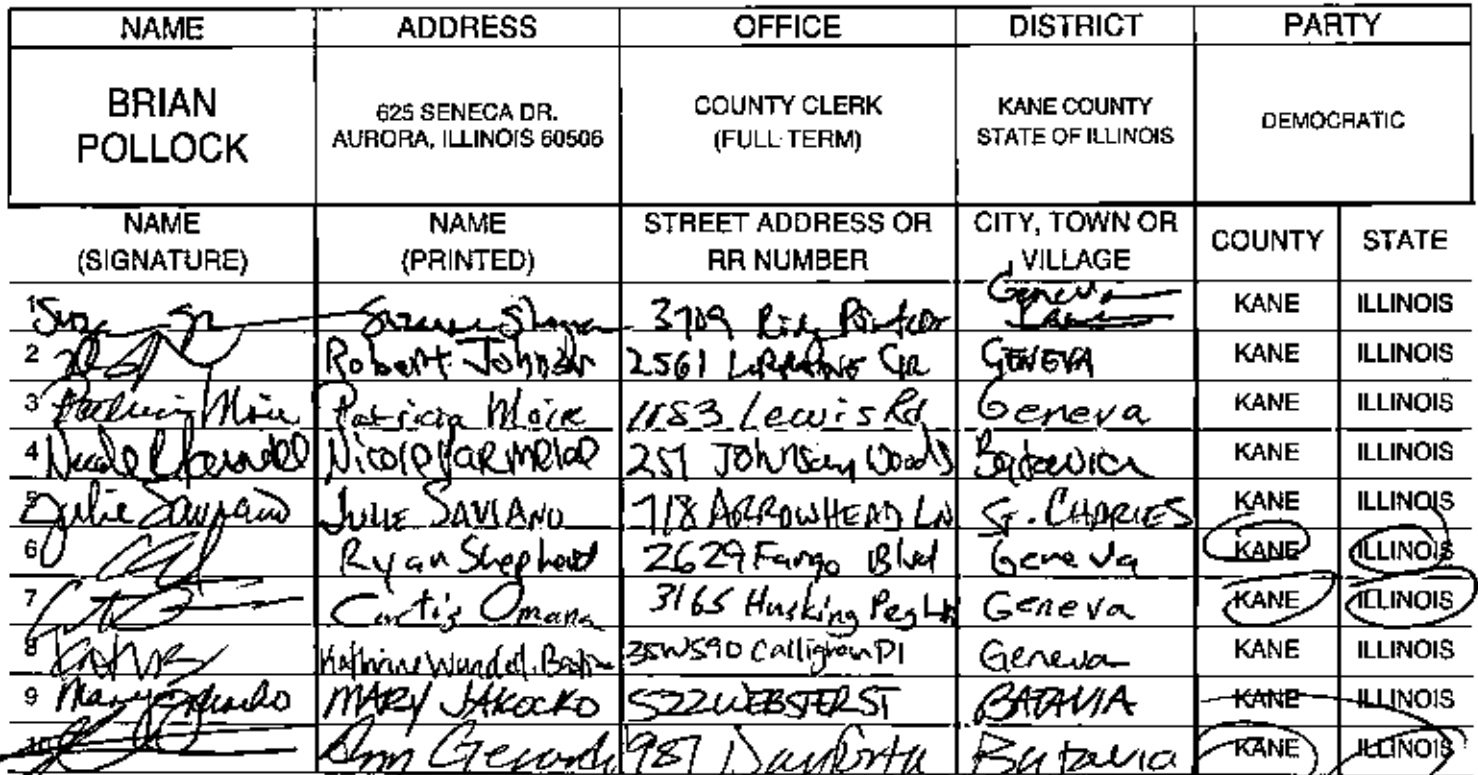 NAME ADDRESS OFFICE DISTRICT PARTY
BRIAN POLLOCK 625 SENECA DR. AURORA, ILLINOIS 60506 COUNTY CLERK (FULL-TERM) KANE COUNTY STATE OF ILLINOIS DEMOCRATIC
NAME (SIGNATURE) NAME (PRINTED) STREET ADDRESS OR RR NUMBER CITY, TOWN OR VILLAGE COUNTY STATE
1 3709 Geneva KANE ILLINOIS
2 Robert Johnson 2561 GENEVA KANE ILLINOIS
3 Patricia Patricia 1183 Lewis Rd Geneva KANE ILLINOIS
4 Nicole 251 Johnson Woods Batavia KANE ILLINOIS
5 Julie Saviano JULIE SAVIANO 718 ARROWHEAD LN ST. CHARLES KANE ILLINOIS
6 Ryan Shepherd 2629 Fargo Blvd Geneva KANE ILLINOIS
7 Curtis Omana 3165 Husking Peg Ln Geneva KANE ILLINOIS
8 35W590 Pl Geneva KANE ILLINOIS
9 Mary MARY JAKOCKO 522 WEBSTER ST BATAVIA KANE ILLINOIS
10 Ann 987 Batavia KANE ILLINOIS